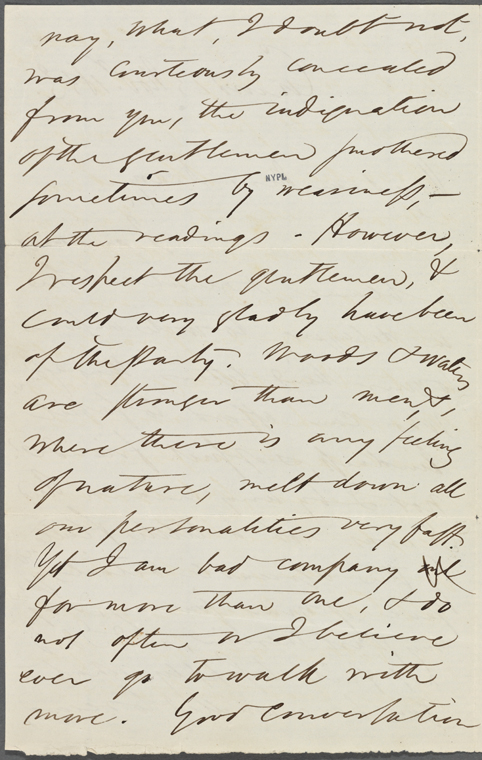 nay, what, I doubt not,
was courteously concealed
from you, the indignation
of the gentlemen smothered
NYPL
sometimes by weariness, —
at the readings. However,
I respect the gentlemen, &
could very gladly have been
of the party. Woods & waters
are stronger than men, &,
where there is any feeling
of nature, melt down all
our personalities very fast.
Yet I am bad company
for more than one, & do
not often or I believe
ever go to walk with
more. Good conversation